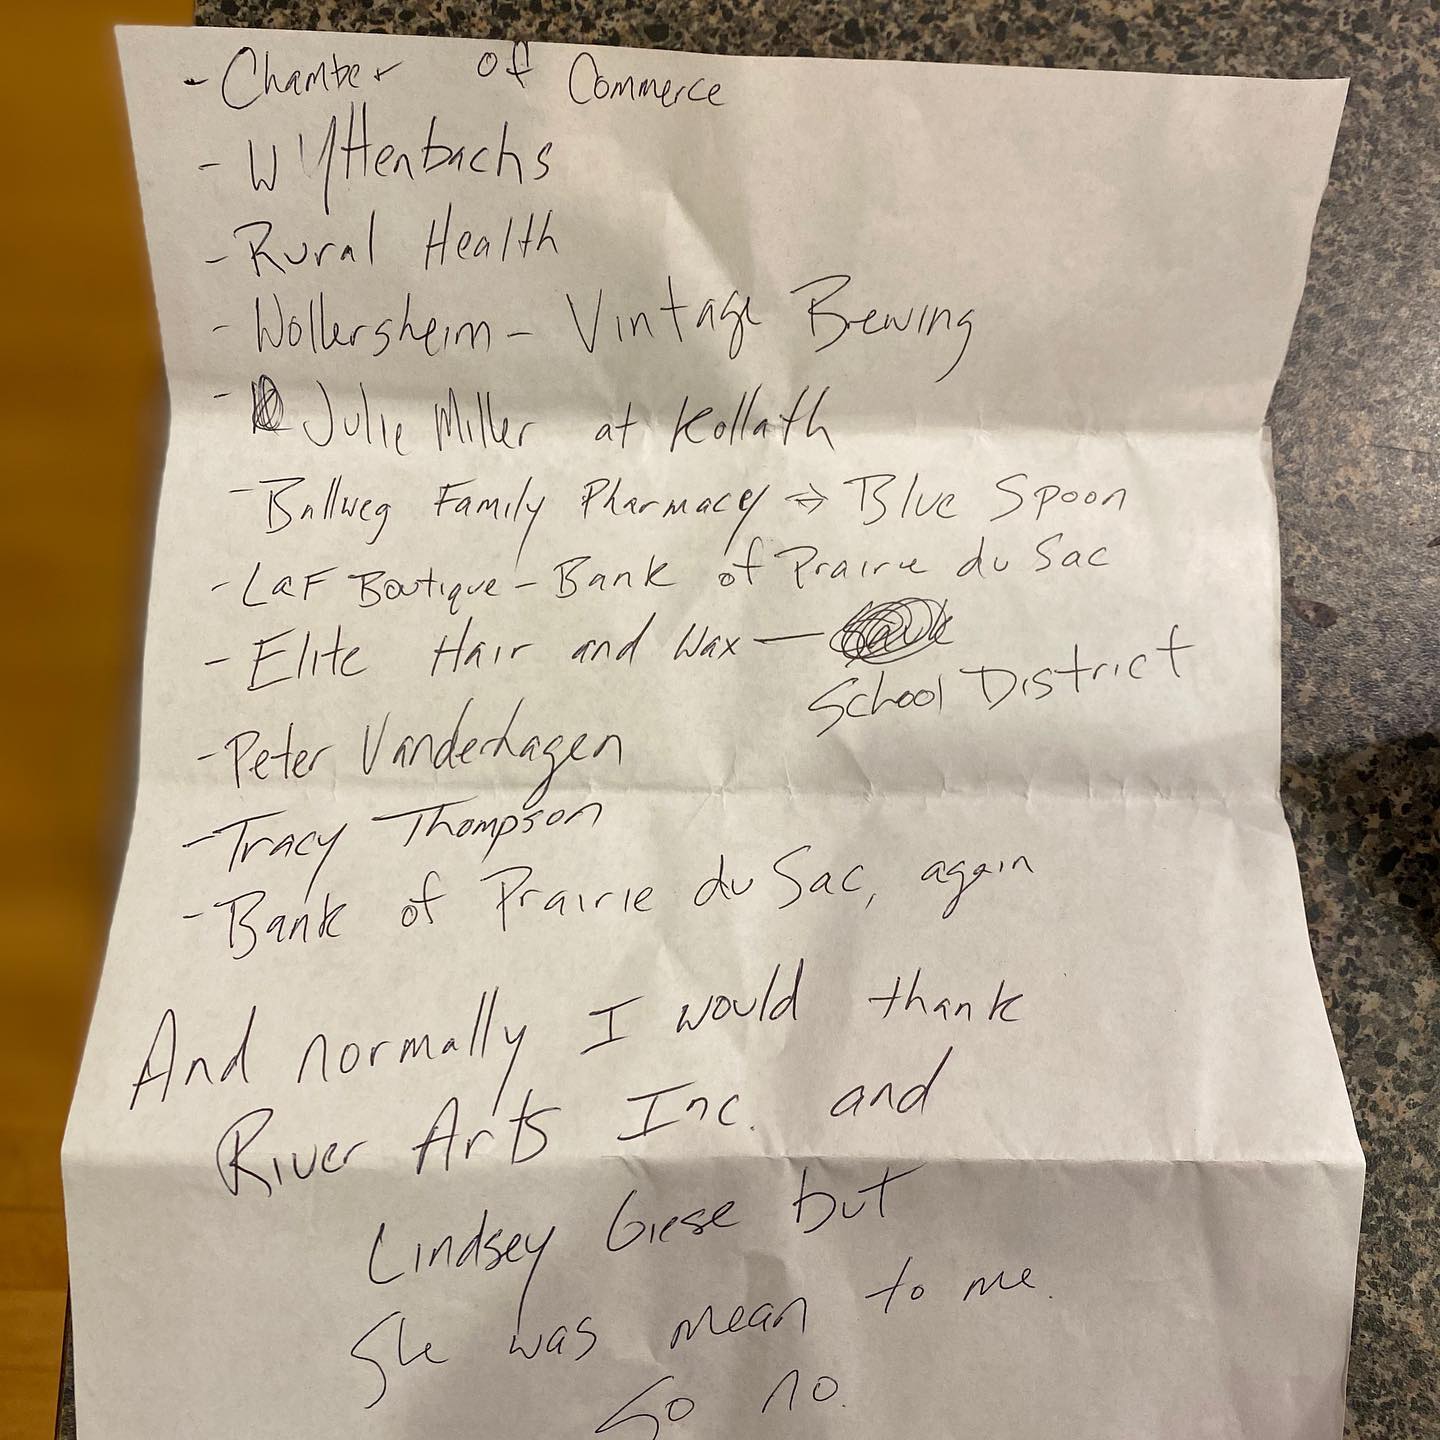 - Chamber of Commerce
- Wyttenbachs
- Rural Health
- Wollersheim - Vintage Brewing
- Julie Miller at Kollath
- Ballweg Family Pharmacy ⇔ Blue Spoon
- L&F Boutique - Bank of Prairie du Sac
- Elite Hair and Wax —
School District
- Peter Vanderhagen
- Tracy Thompson
- Bank of Prairie du Sac, again
And normally I would thank
River Arts Inc. and
Lindsey Giese but
She was mean to me.
So no.